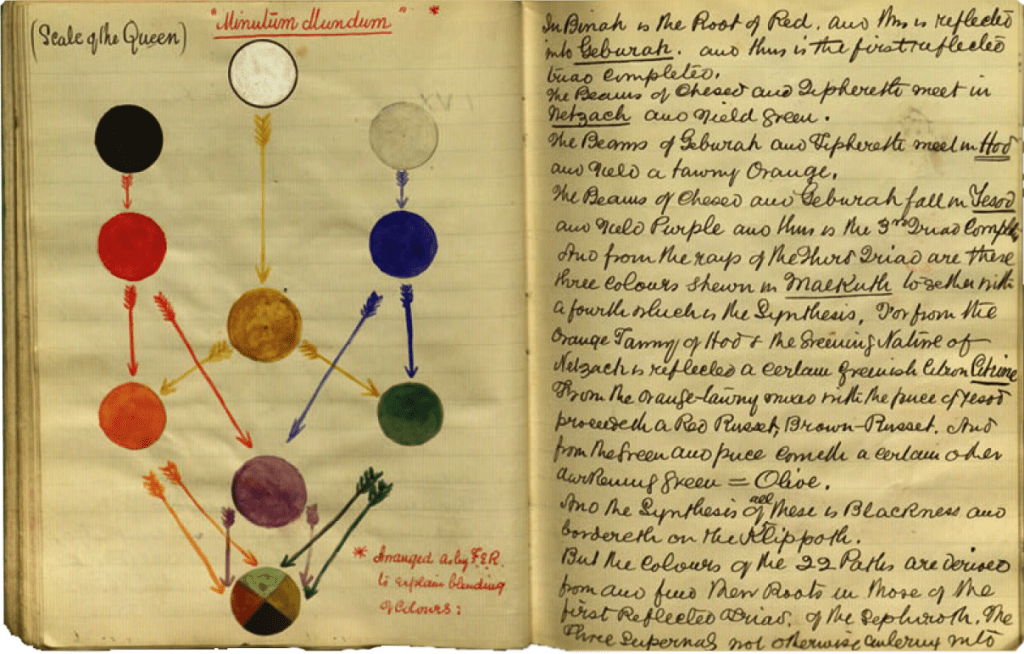 "Minutum Mundum" *
(Scale of the Queen)
* Arranged as by F.E.R.
to explain blending
of Colours:
In Binah is the Root of Red, and this is reflected
into Geburah. and thus is the first reflected
triad completed.
The Beams of Chesed and Tiphereth meet in
Netzach and yield green.
The Beams of Geburah and Tiphereth meet in Hod
and yield a tawny Orange.
The Beams of Chesed and Geburah fall in Yesod
and yield Purple and thus is the 3rd Triad Comple
And from the rays of the Third Triad are these
three colours shewn in Malkuth together with
a fourth which is the Synthesis. For from the
Orange Tawny of Hod & the Greening Nature of
Netzach is reflected a certain greenish Citron Citrine
From the orange-tawny mixed with the puce of Yesod
proceedeth a Red Russet, Brown-Russet. And
from the Green and puce cometh a certain other
darkening green = Olive.
And the Synthesis of all these is Blackness and
bordereth on the Klippoth.
But the Colours of the 22 Paths are derived
from and find their Roots in those of the
first Reflected Triad. of the Sephiroth. The
Three Supernals not otherwise entering into